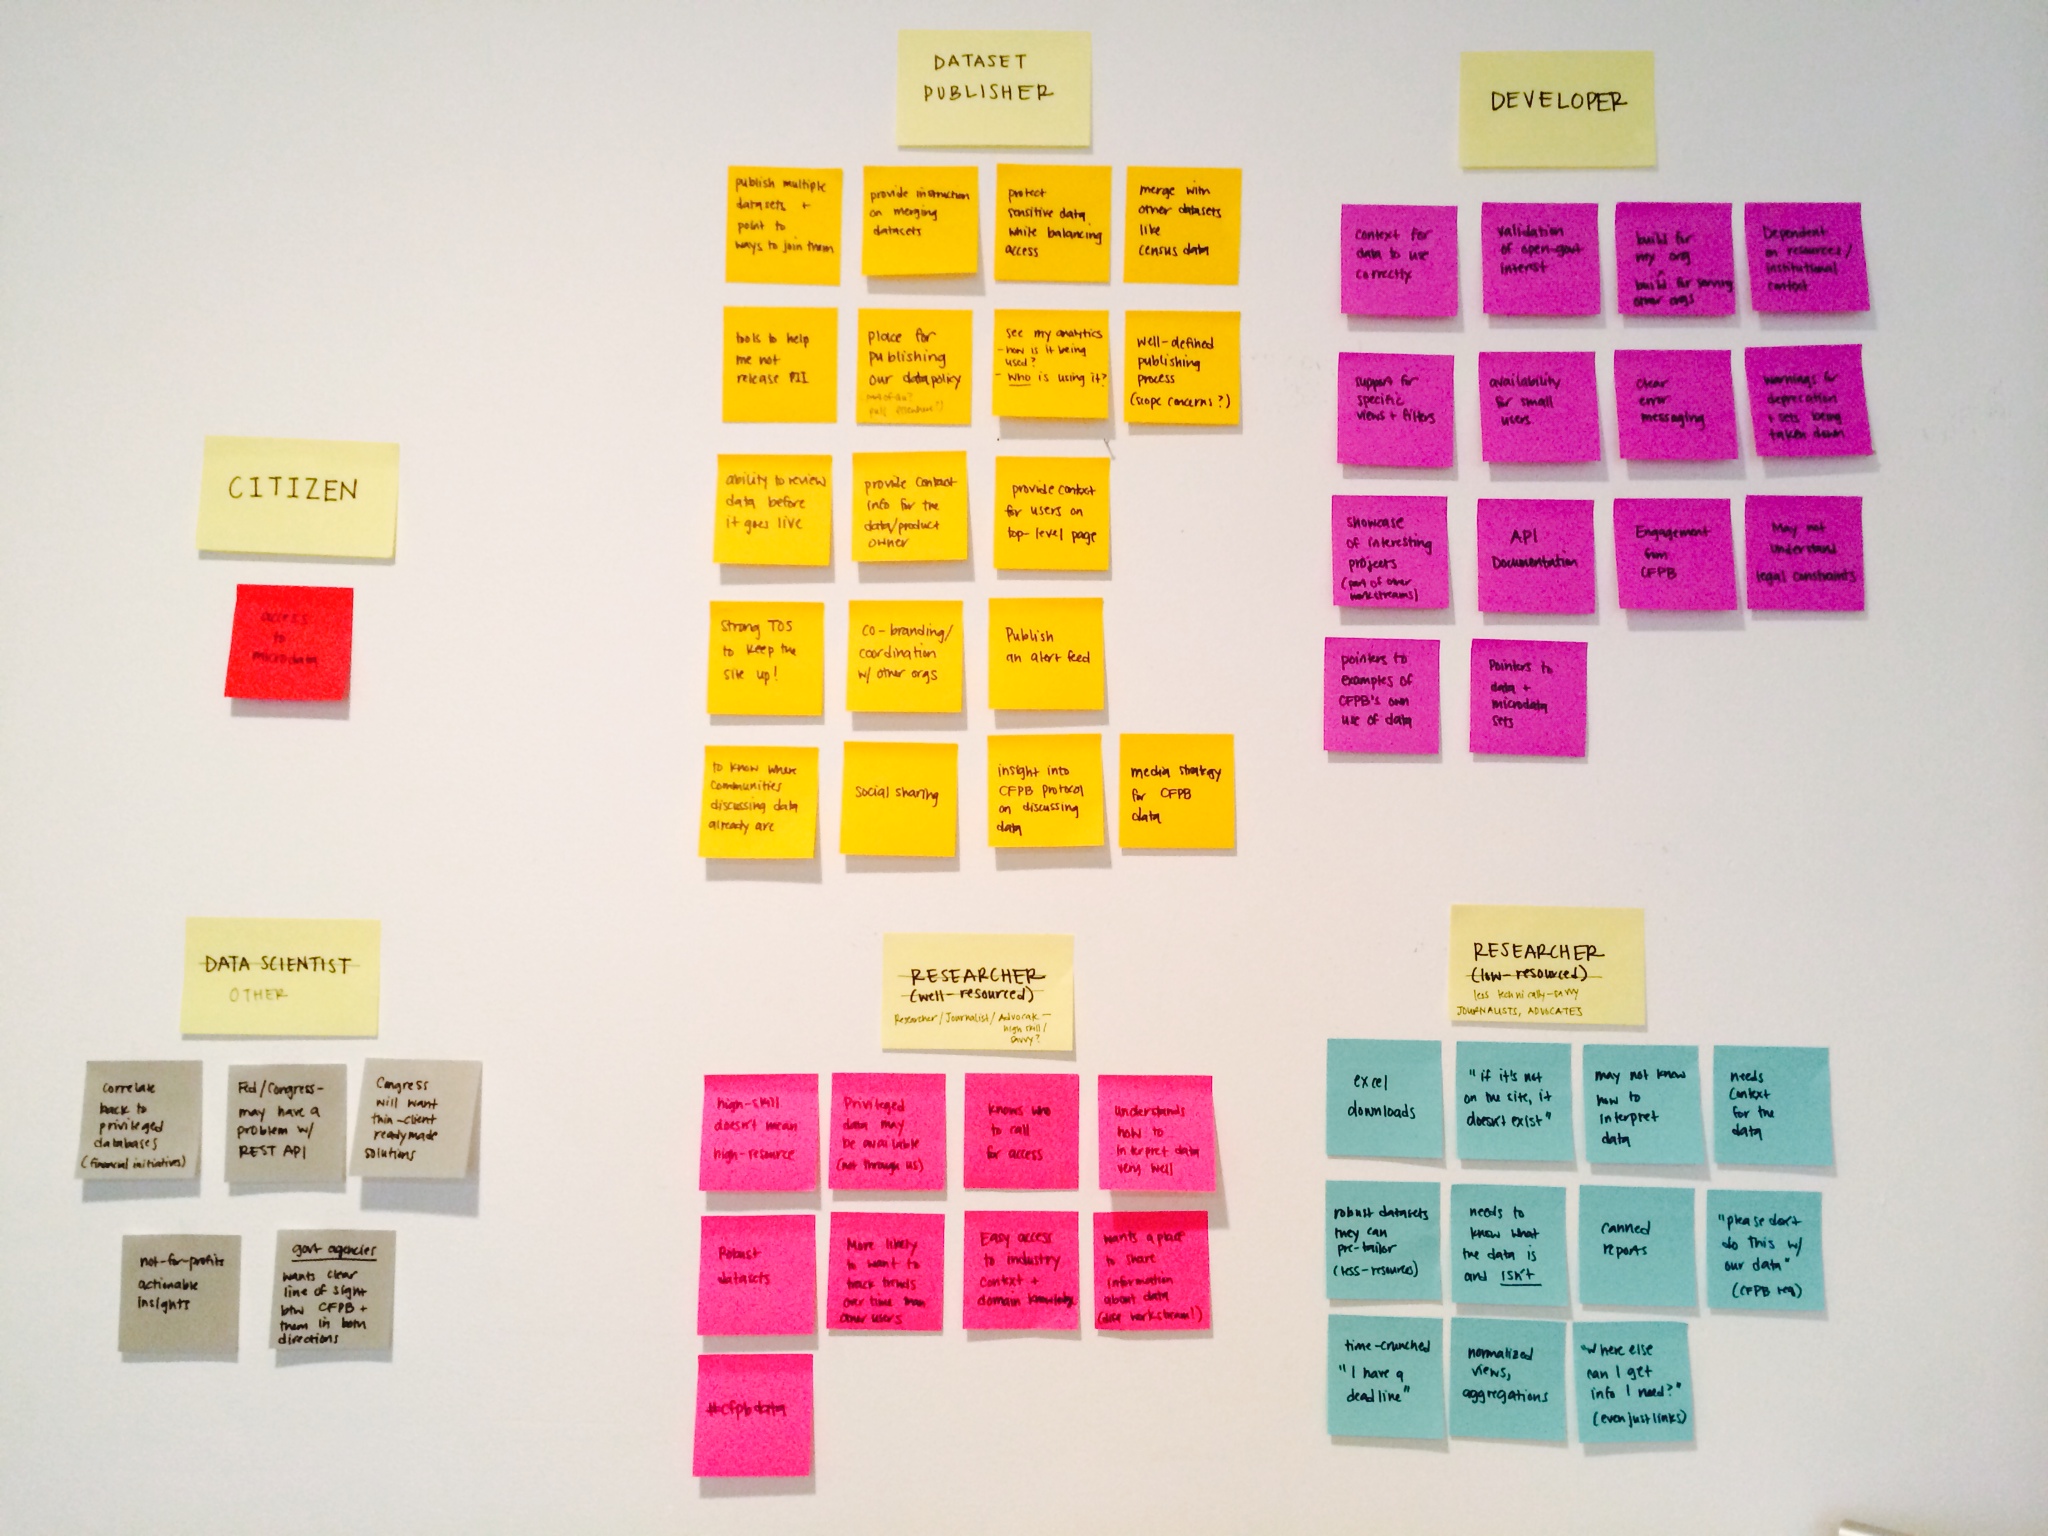 DATASET
PUBLISHER
publish multiple
datasets +
point to
ways to join them
provide instruction
on merging
datasets
protect
sensitive data
while balancing
access
merge with
other datasets
like
census data
tools to help
me not
release PII
place for
publishing
our data policy
see my analytics
- how is it being
used?
- Who is using it?
well-defined
publishing
process
(scope concerns?)
ability to review
data before
it goes live
provide contact
info for the
data/product
owner
provide context
for users on
top-level page
strong TOS
to keep the
site up!
co-branding/
coordination
w/ other orgs
Publish
an alert feed
to know where
communities
discussing data
already are
social sharing
insight into
CFPB protocol
on discussing
data
media strategy
for CFPB
data
DEVELOPER
context for
data to use
correctly
validation
of open-gov't
interest
build for
my org
build for serving
other orgs
Dependent
on resources/
institutional
context
support for
specific
views + filters
availability
for small
users
clear
error
messaging
warnings for
deprecation
+ sets being
taken down
showcase
of interesting
projects
(part of other
workstreams)
API
Documentation
Engagement
from
CFPB
May not
understand
legal constraints
pointers to
examples of
CFPB's own
use of data
Pointers to
data +
microdata
sets
CITIZEN
access
to
microdata
DATA SCIENTIST
OTHER
correlate
back to
privileged
databases
(financial initiatives)
Fed/Congress-
may have a
problem w/
REST API
Congress
will want
thin-client
readymade
solutions
not-for-profits
actionable
insights
govt agencies
wants clear
line of sight
btw CFPB +
them in both
directions
RESEARCHER
(well-resourced)
Researcher/Journalist/Advocate-
high skill/
savvy?
high-skill
doesn't mean
high-resource
Privileged
data may
be available
(not through us)
knows who
to call
for access
Understands
how to
interpret data
very well
Robust
datasets
More likely
to want to
track trends
over time than
other users
Easy access
to industry
context +
domain knowledge
wants a place
to share
information
about data
workstream!)
#cfpbdata
RESEARCHER
(low-resourced)
less technically-savvy
JOURNALISTS, ADVOCATES
excel
downloads
"if it's not
on the site, it
doesn't exist"
may not know
how to
interpret
data
needs
context
for the
data
robust datasets
they can
pre-tailor
(less-resources)
needs to
know what
the data is
and isn't
canned
reports
"please don't
do this w/
our data"
(CFPB req)
time-crunched
"I have a
deadline"
normalized
views,
aggregations
"Where else
can I get
info I need?"
(even just links)